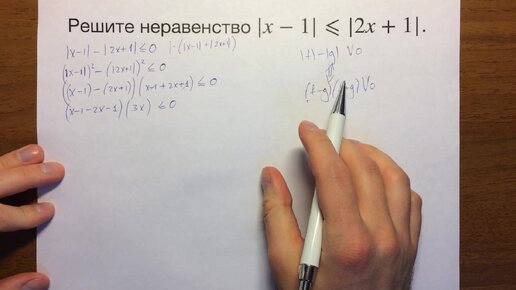 Решите неравенство |x − 1| ⩽ |2x + 1|.
|x-1| - |2x+1| ≤ 0 | · (|x-1| + |2x+1|)
(|x-1|)² - (|2x+1|)² ≤ 0
((x-1) - (2x+1)) (x-1+2x+1) ≤ 0
(x-1-2x-1) (3x) ≤ 0
|f| - |g| V 0
(f-g)( -g) V 0